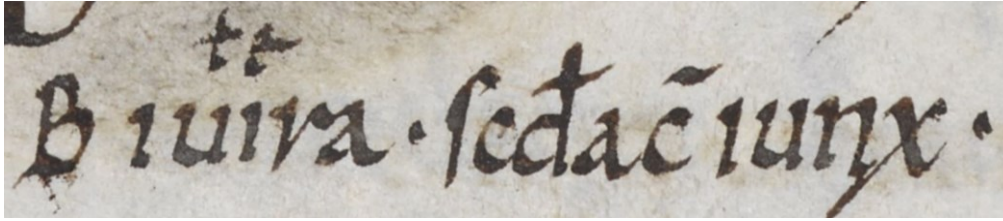 B iuira · scđac̄ iunx ·